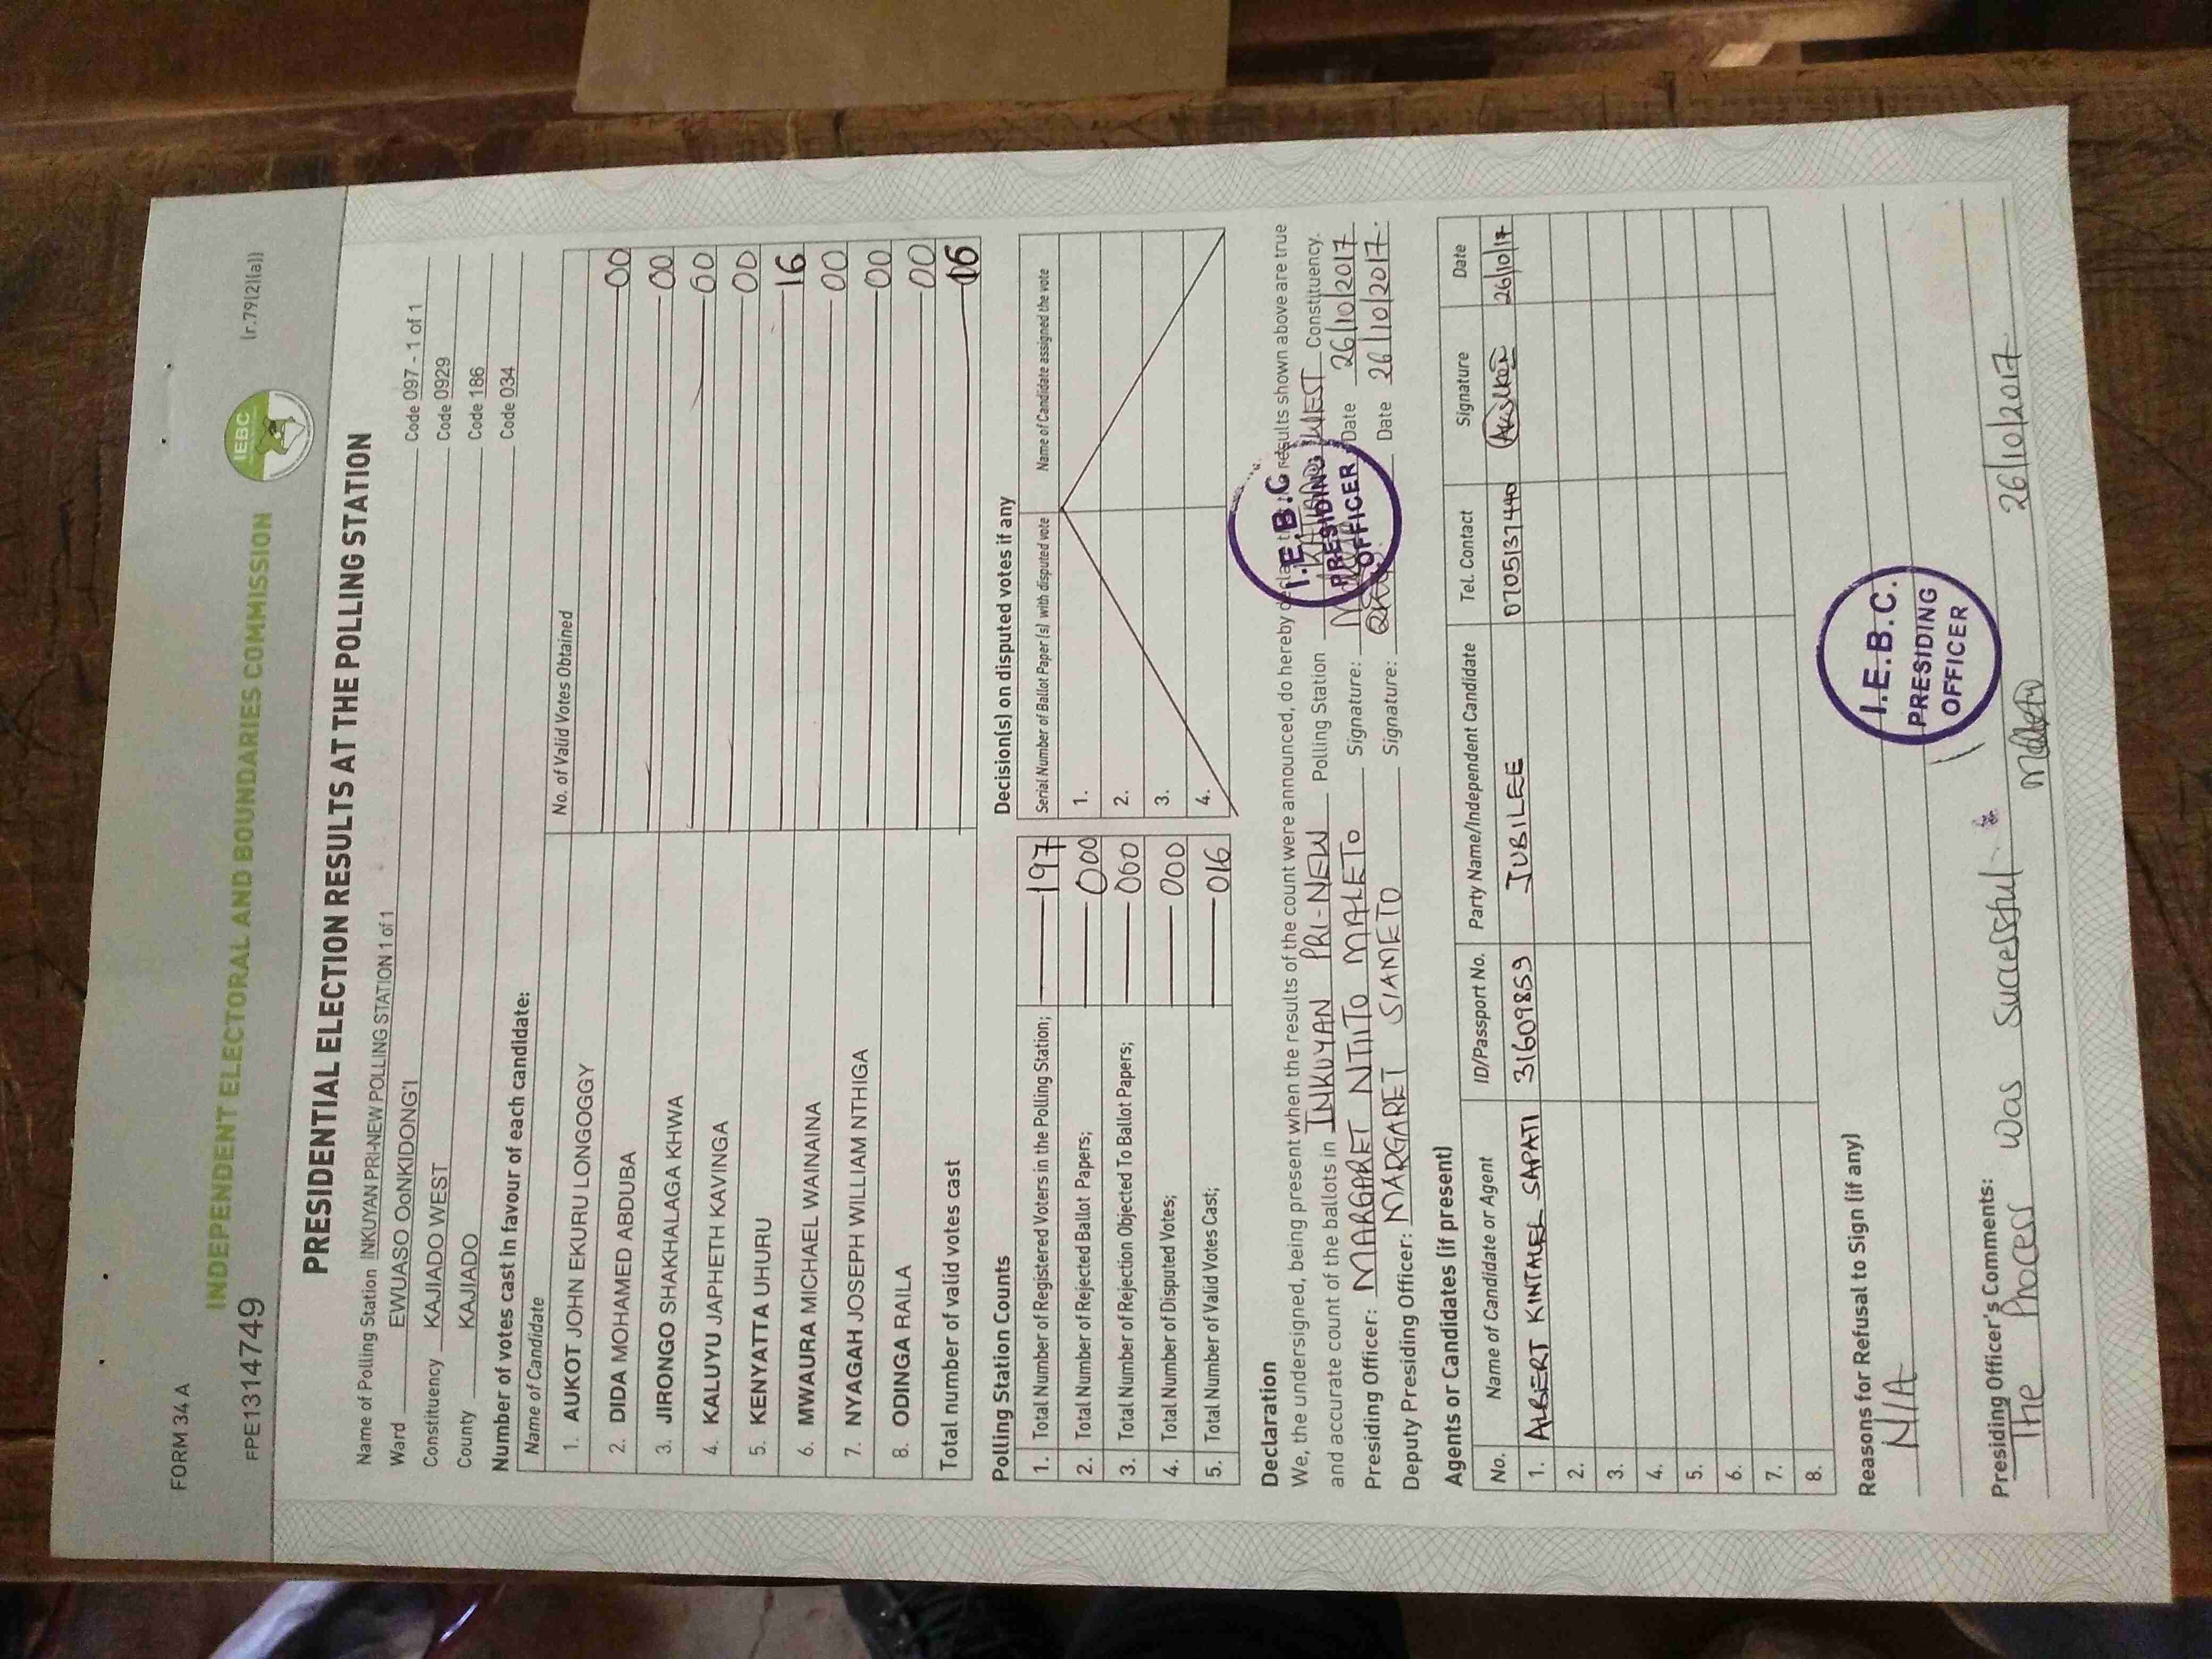 FORM 34 A
INDEPENDENT ELECTORAL AND BOUNDARIES COMMISSION
IEBC
(r.79(2)(a))
FPE1314749
PRESIDENTIAL ELECTION RESULTS AT THE POLLING STATION
Name of Polling Station INKUYAN PRI-NEW POLLING STATION 1 of 1 Code 097 - 1 of 1
Ward EWUASO OoNKIDONG'I Code 0929
Constituency KAJIADO WEST Code 186
County KAJIADO Code 034
Number of votes cast in favour of each candidate:
Name of Candidate No. of Valid Votes Obtained
1. AUKOT JOHN EKURU LONGOGGY 00
2. DIDA MOHAMED ABDUBA 00
3. JIRONGO SHAKHALAGA KHWA 00
4. KALUYU JAPHETH KAVINGA 00
5. KENYATTA UHURU 16
6. MWAURA MICHAEL WAINAINA 00
7. NYAGAH JOSEPH WILLIAM NTHIGA 00
8. ODINGA RAILA 00
Total number of valid votes cast 16
Polling Station Counts
1. Total Number of Registered Voters in the Polling Station; 197
2. Total Number of Rejected Ballot Papers; 000
3. Total Number of Rejection Objected To Ballot Papers; 000
4. Total Number of Disputed Votes; 000
5. Total Number of Valid Votes Cast; 016
Decision(s) on disputed votes if any
Serial Number of Ballot Paper (s) with disputed vote Name of Candidate assigned the vote
1.
2.
3.
4.
Declaration
We, the undersigned, being present when the results of the count were announced, do hereby declare results shown above are true
and accurate count of the ballots in INKUYAN PRI-NEW Polling Station WEST Constituency.
Presiding Officer: MARGARET NTIITO MALETO Signature: Date 26/10/2017
Deputy Presiding Officer: MARGARET SIAMETO Signature: Date 26/10/2017.
I.E.B.C
PRESIDING
OFFICER
Agents or Candidates (if present)
No. Name of Candidate or Agent ID/Passport No. Party Name/Independent Candidate Tel. Contact Signature Date
1. ALBERT SAPATI 31609859 JUBILEE 0705137440 26/10/17
2.
3.
4.
5.
6.
7.
8.
Reasons for Refusal to Sign (if any)
N/A
I.E.B.C.
PRESIDING
OFFICER
Presiding Officer's Comments:
The Process was Sucessful. 26/10/2017